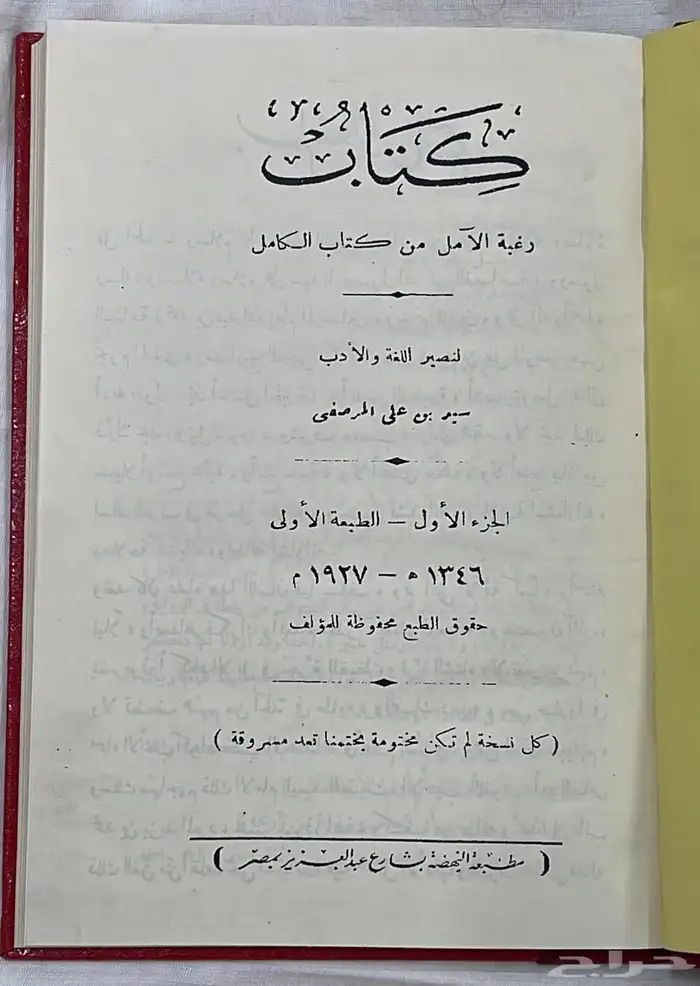 كتاب
رغبة الآمل من كتاب الكامل
لنصير اللغة والأدب
سيد بن على المرصفى
الجزء الأول — الطبعة الأولى
١٣٤٦ ه — ١٩٢٧ م
حقوق الطبع محفوظة للمؤلف
( كل نسخة لم تكن مختومة بختمنا تعد مسروقة )
( مطبعة النهضة بشارع عبد العزيز بمصر )
حراج